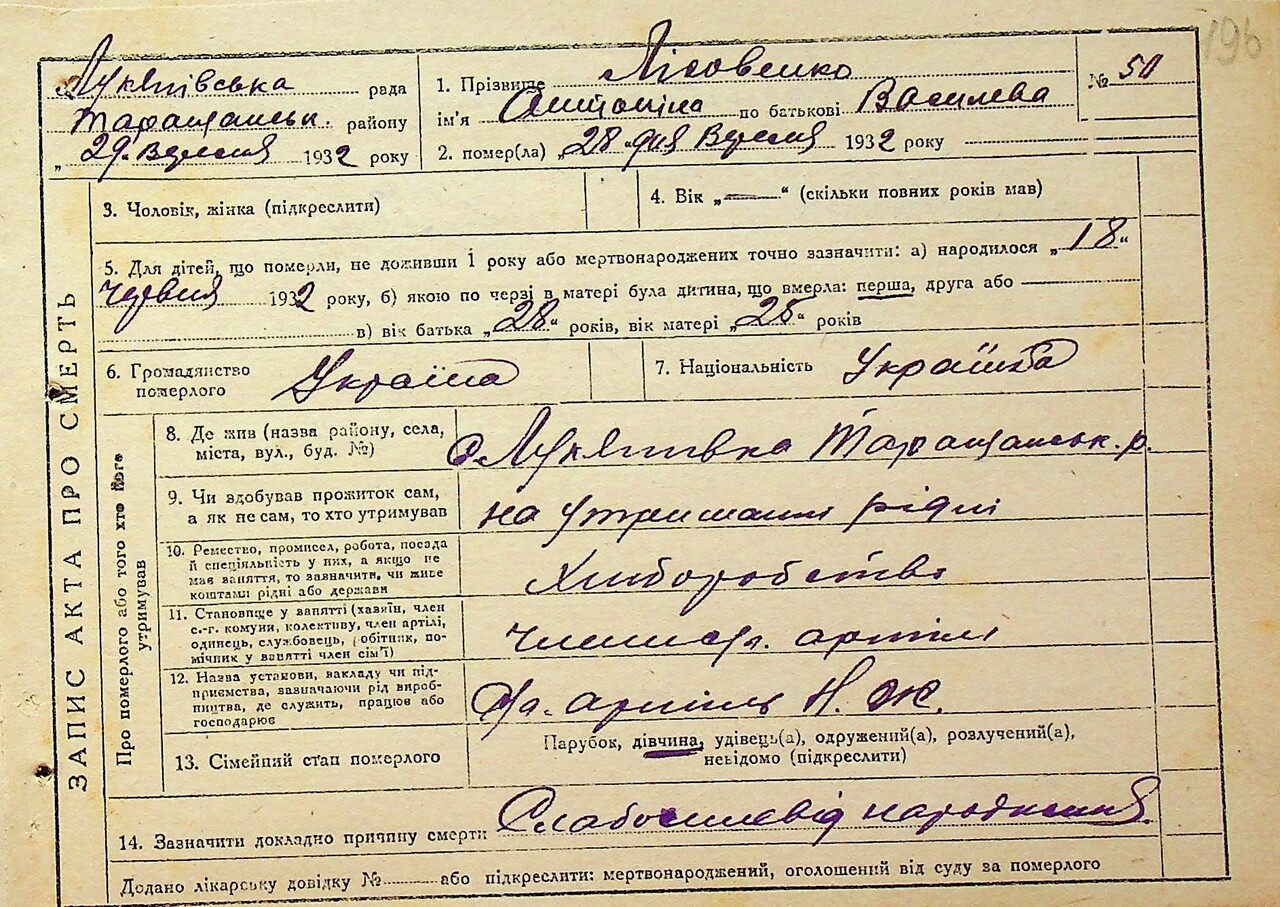 196
Лукянівська рада
Таращанськ. району
„ 29. Вересня 1932 року
1. Прізвище Лісовенко
ім'я Антоніна по батькові Василева
№ 50
2. помер(ла) „28“ дня Вересня 1932 року
ЗАПИС АКТА ПРО СМЕРТЬ
3. Чоловік, жінка (підкреслити)
4. Вік „—“ (скільки повних років мав)
5. Для дітей, що померли, не доживши 1 року або мертвонароджених точно зазначити: а) народилося „18“
червня 1932 року, б) якою по черзі в матері була дитина, що вмерла: перша, друга або
в) вік батька „28“ років, вік матері „25“ років
6. Громадянство
померлого
Україна
7. Національність Українка
Про померлого або того хто його
утримував
8. Де жив (назва району, села,
міста, вул., буд. №)
с Лукянівка Таращанськ. р.
9. Чи вдобував прожиток сам,
а як не сам, то хто утримував
на утриманні рідні
10. Ремество, промисел, робота, посада
й спеціяльність у них, а якщо не
мав заняття, то зазначити, чи живе
коштами рідні або держави
Хліборобство
11. Становище у занятті (хазяїн, член
с.-г. комуни, колективу, член артілі,
одинець, службовець, робітник, по-
мічник у занятті член сім'ї)
артілі
12. Назва установи, вакладу чи під-
приємства, зазначаючи рід вироб-
ництва, де служить, працює або
господарює
артіль Н. Ж.
13. Сімейний стан померлого
Парубок, дівчина, удівець(а), одружений(а), розлучений(а),
невідомо (підкреслити)
14. Зазначити докладно причину смерти Слабосиле від народження
Додано лікарську довідку № або підкреслити: мертвонароджений, оголошений від суду за померлого